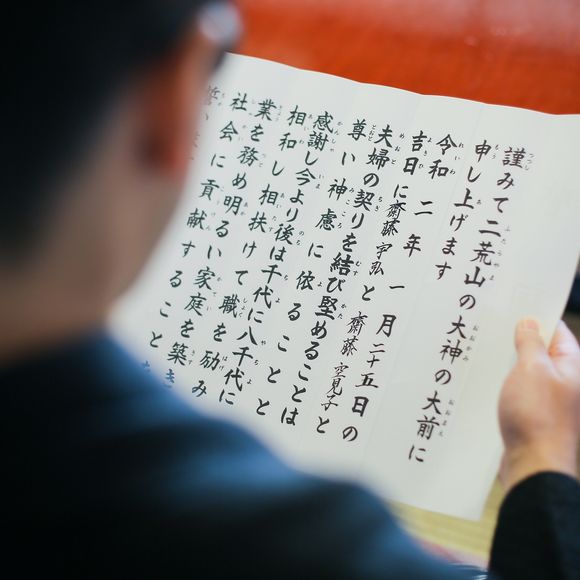 謹みて二荒山の大神の大前に
申し上げます
令和 二年 一月二十五日の
吉日に齋藤宇弘と齋藤空見子と
夫婦の契りを結び堅めることは
尊い神慮に依ることと
感謝し今より後は千代に八千代に
相和し相扶けて職を励み
業を務め明るい家庭を築き
社会に貢献すること